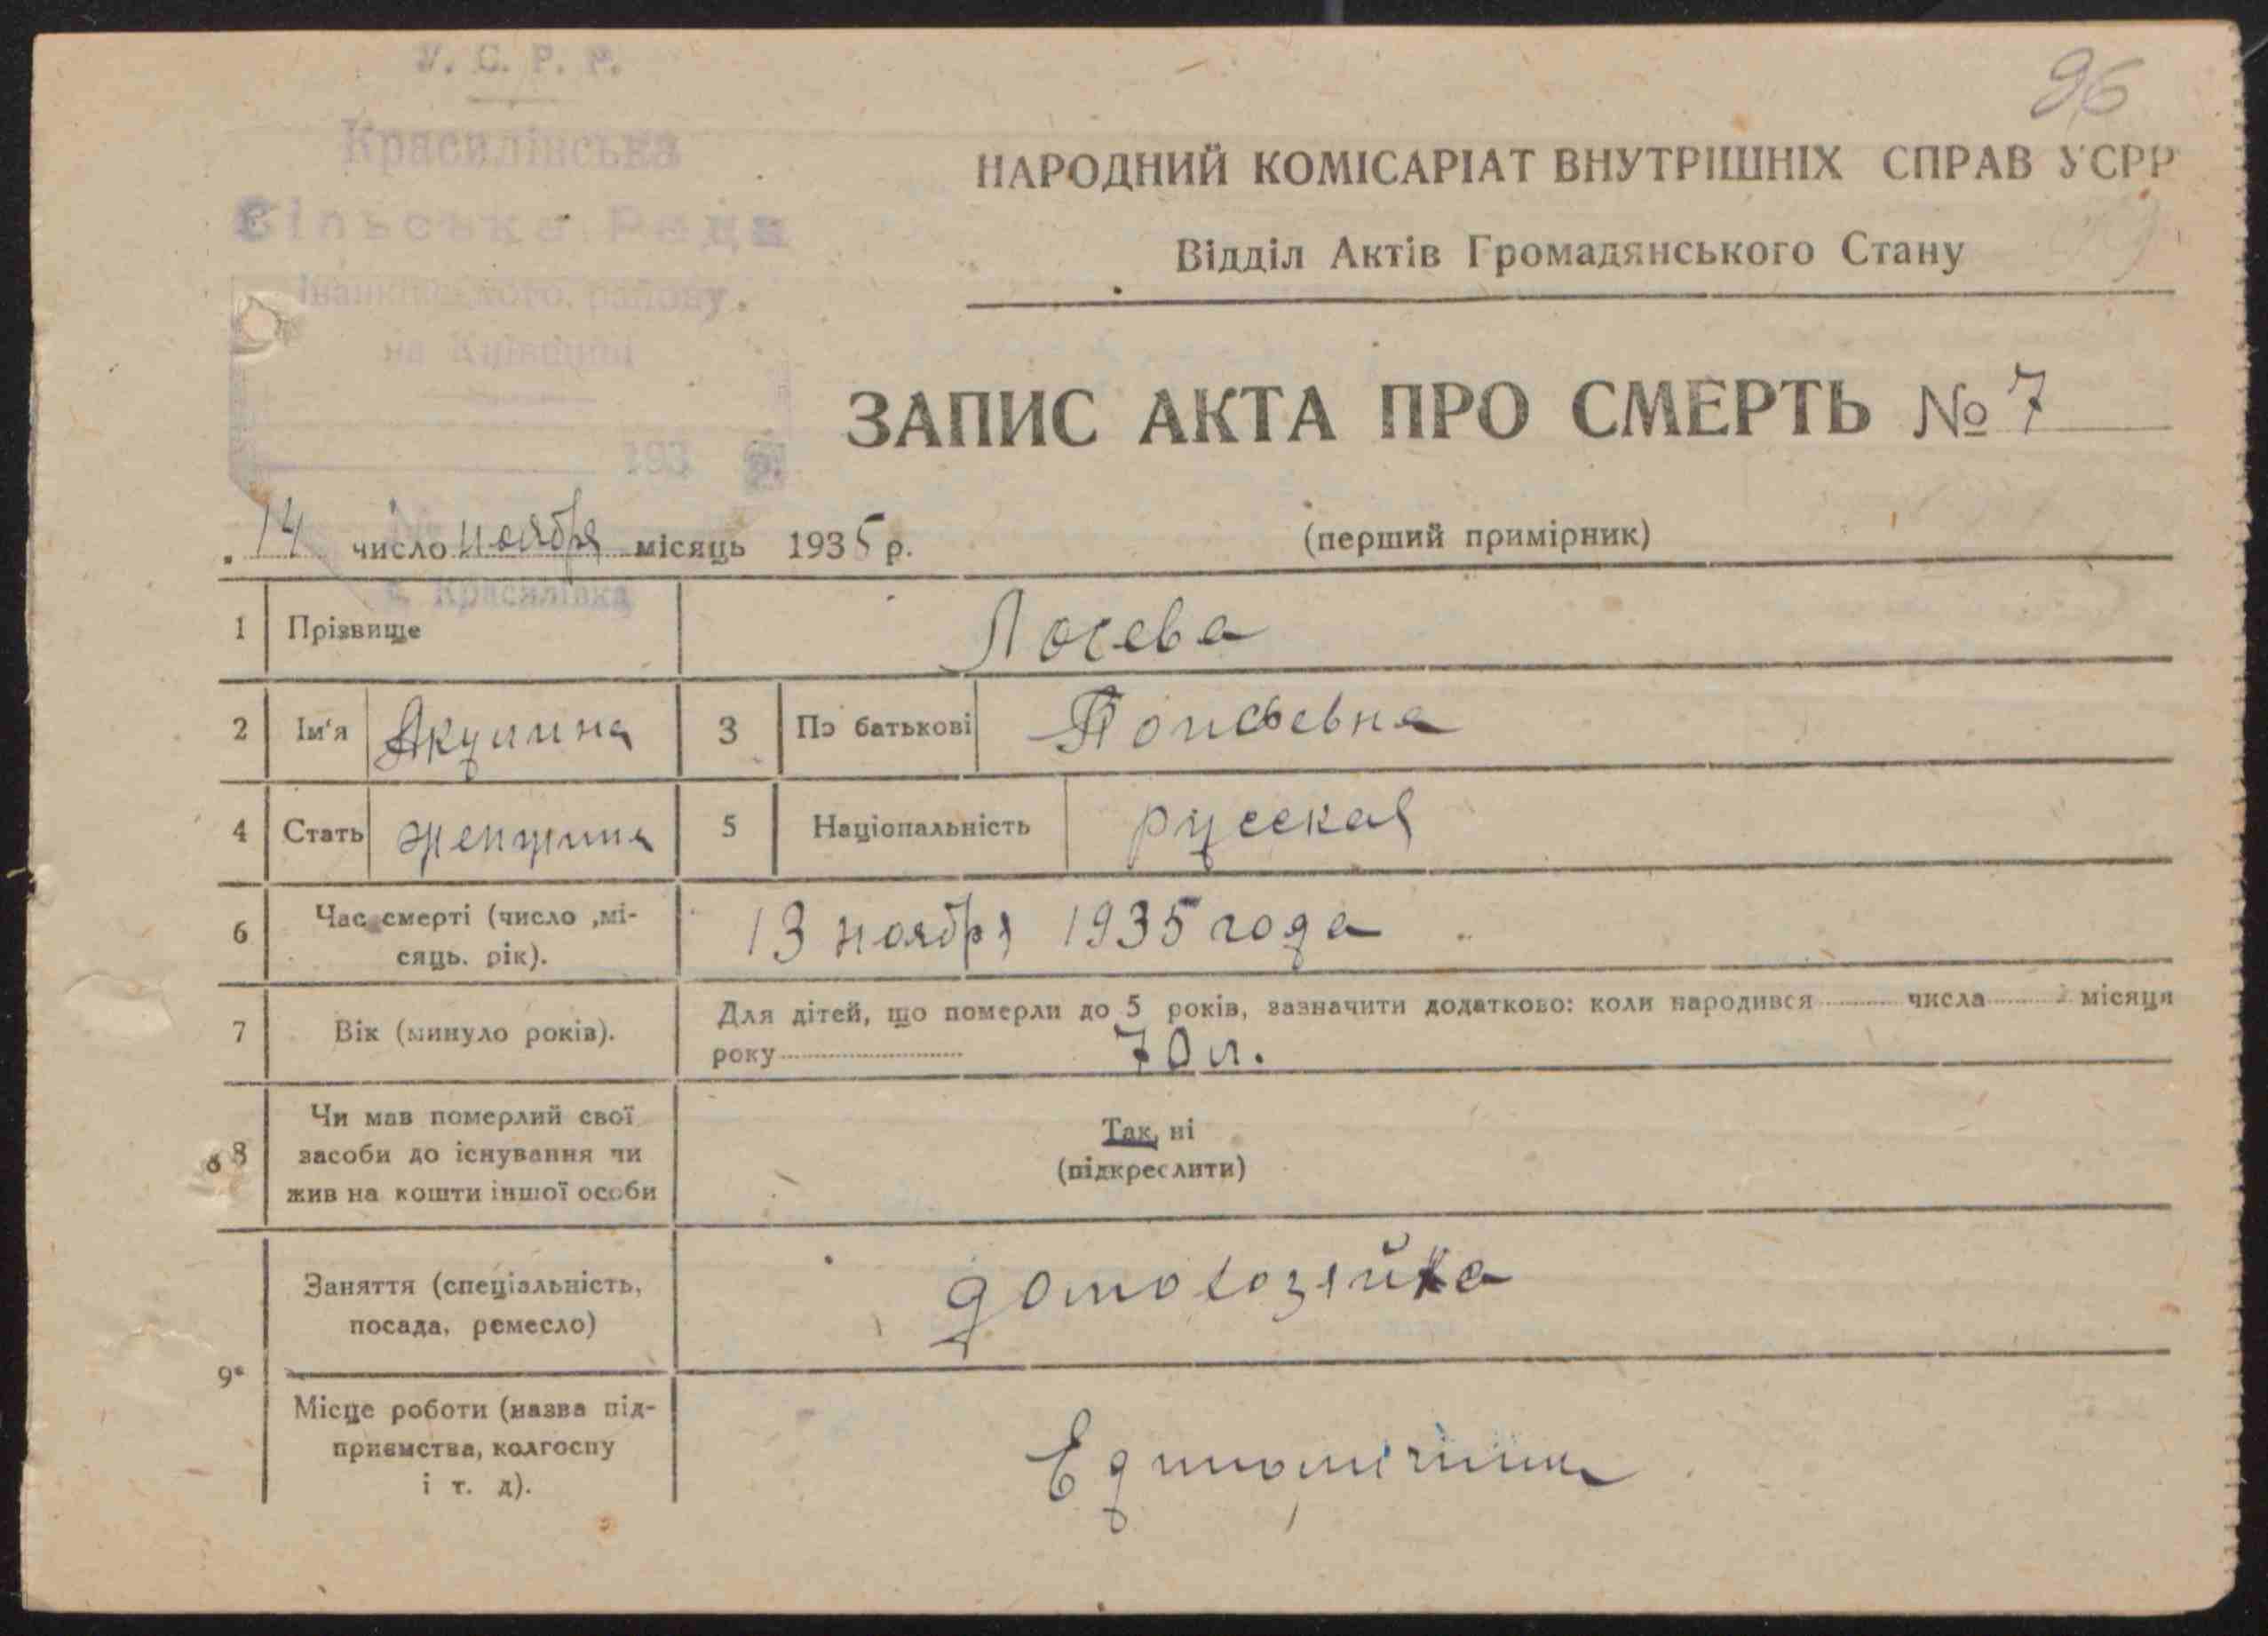 У. С. Р. Р.
Красилівська
Сільська Рада
Іванківського району
на Київщині
193 р.
с. Красилівка
96
НАРОДНИЙ КОМІСАРІАТ ВНУТРІШНІХ СПРАВ УСРР
Відділ Актів Громадянського Стану
ЗАПИС АКТА ПРО СМЕРТЬ № 7
14 число ноября місяць 1935 р.
(перший примірник)
1 Прізвище Лосева
2 Ім'я Акулина 3 По батькові
4 Стать женщина 5 Національність русская
6 Час смерті (число ,мі-
сяць. рік).
13 ноября 1935 года
7 Вік (минуло років).
Для дітей, що померли до 5 років, зазначити додатково: коли народився числа місяця
року 70 л.
8 Чи мав померлий свої
засоби до існування чи
жив на кошти іншої особи
Так, ні
(підкреслити)
9
Заняття (спеціальність,
посада, ремесло)
домохозяйка
Місце роботи (назва під-
приємства, колгоспу
і т. д).